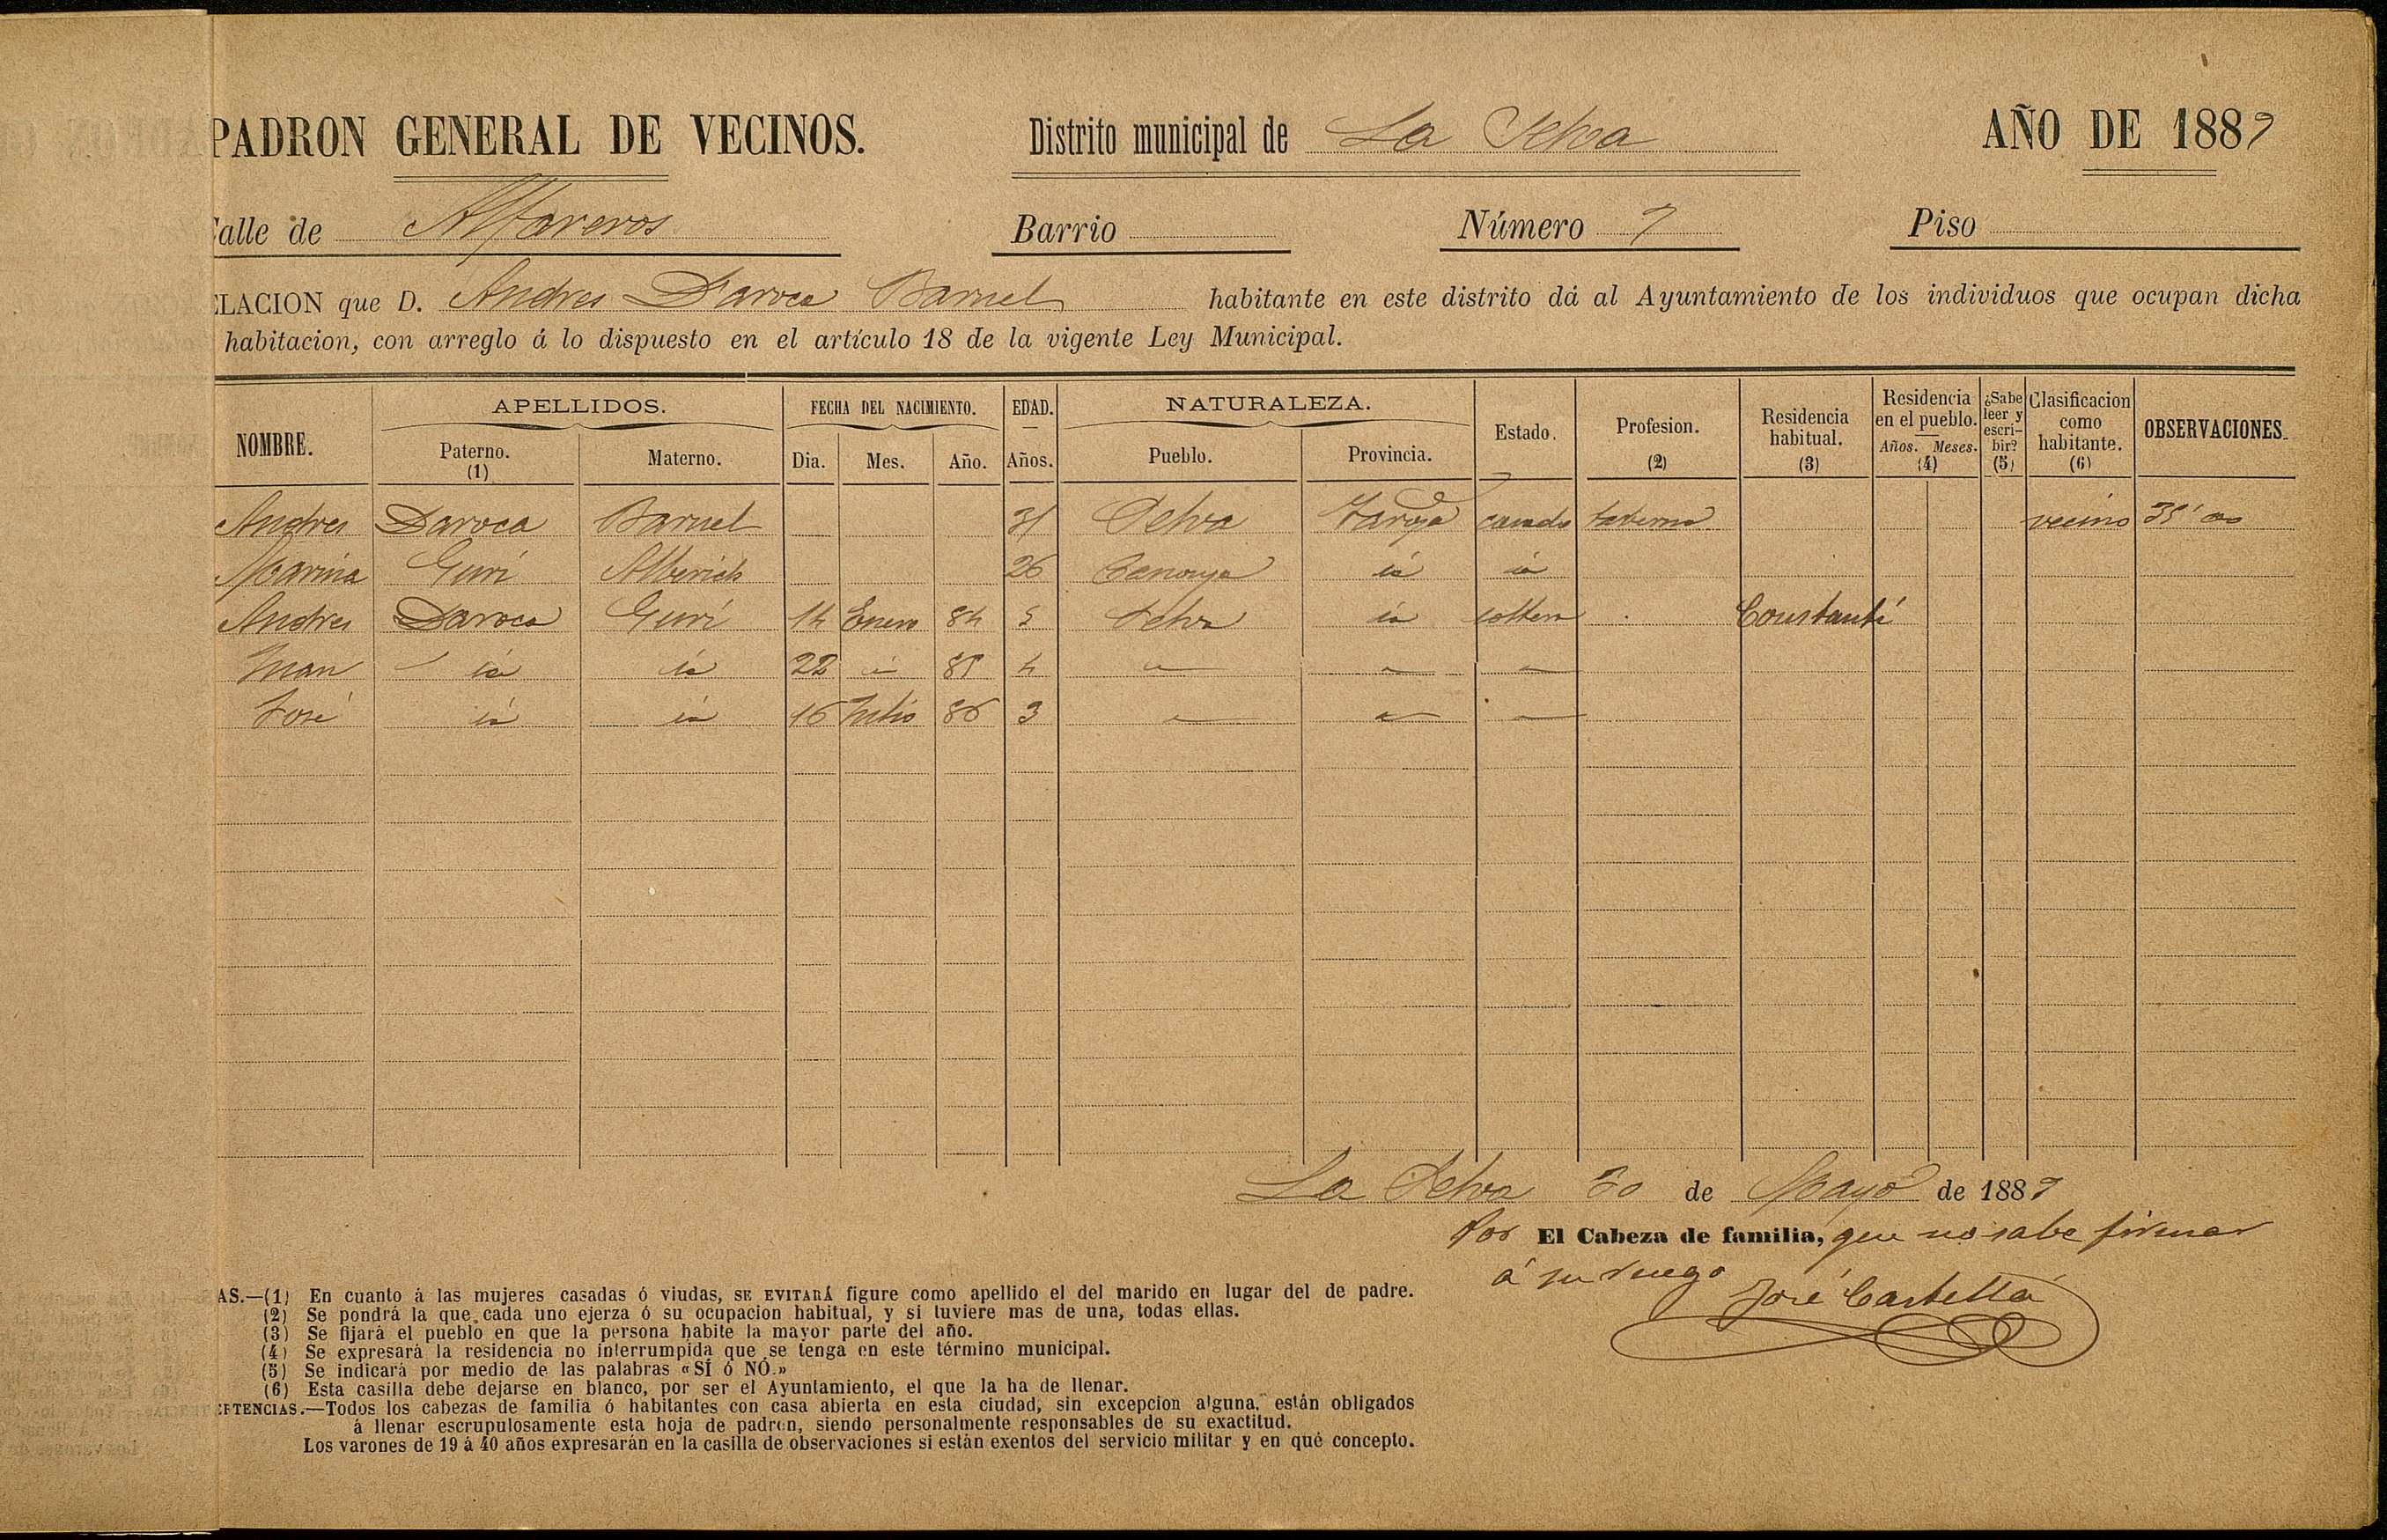 PADRON GENERAL DE VECINOS. Distrito municipal de La Selva AÑO DE 1889
alle de Alfareros Barrio Número 7 Piso
ELACION que D. Andres Daroca Barnel habitante en este distrito dá al Ayuntamiento de los individuos que ocupan dicha
habitacion, con arreglo á lo dispuesto en el artículo 18 de la vigente Ley Municipal.
NOMBRE. APELLIDOS. FECHA DEL NACIMIENTO. EDAD. NATURALEZA. Estado. Profesion. (2) Residencia habitual. (3) Residencia en el pueblo. Años. Meses. (4) ¿Sabe leer y escribir? (5) Clasificacion como habitante. (6) OBSERVACIONES.
Paterno. (1) Materno. Dia. Mes. Año. Años. Pueblo. Provincia.
Andres Daroca Barnel 31 Selva casado vecino
Marina Guri Alberich 26 Canonja id id
Andres Daroca Guri 14 Enero 84 5 Selva id soltero Constantí
Juan id id 22 id 85 4
José id id 16 Julio 86 3
La Selva 30 de Mayo de 1889
Por El Cabeza de familia, que no sabe firmar
á su ruego
José Castellá
AS.—(1) En cuanto á las mujeres casadas ó viudas, SE EVITARÁ figure como apellido el del marido en lugar del de padre.
(2) Se pondrá la que cada uno ejerza ó su ocupacion habitual, y si tuviere mas de una, todas ellas.
(3) Se fijará el pueblo en que la persona habite la mayor parte del año.
(4) Se expresará la residencia no interrumpida que se tenga en este término municipal.
(5) Se indicará por medio de las palabras «SÍ ó NÓ.»
(6) Esta casilla debe dejarse en blanco, por ser el Ayuntamiento, el que la ha de llenar.
ERTENCIAS.—Todos los cabezas de familia ó habitantes con casa abierta en esta ciudad, sin excepcion alguna, están obligados
á llenar escrupulosamente esta hoja de padron, siendo personalmente responsables de su exactitud.
Los varones de 19 á 40 años expresarán en la casilla de observaciones si están exentos del servicio militar y en qué concepto.